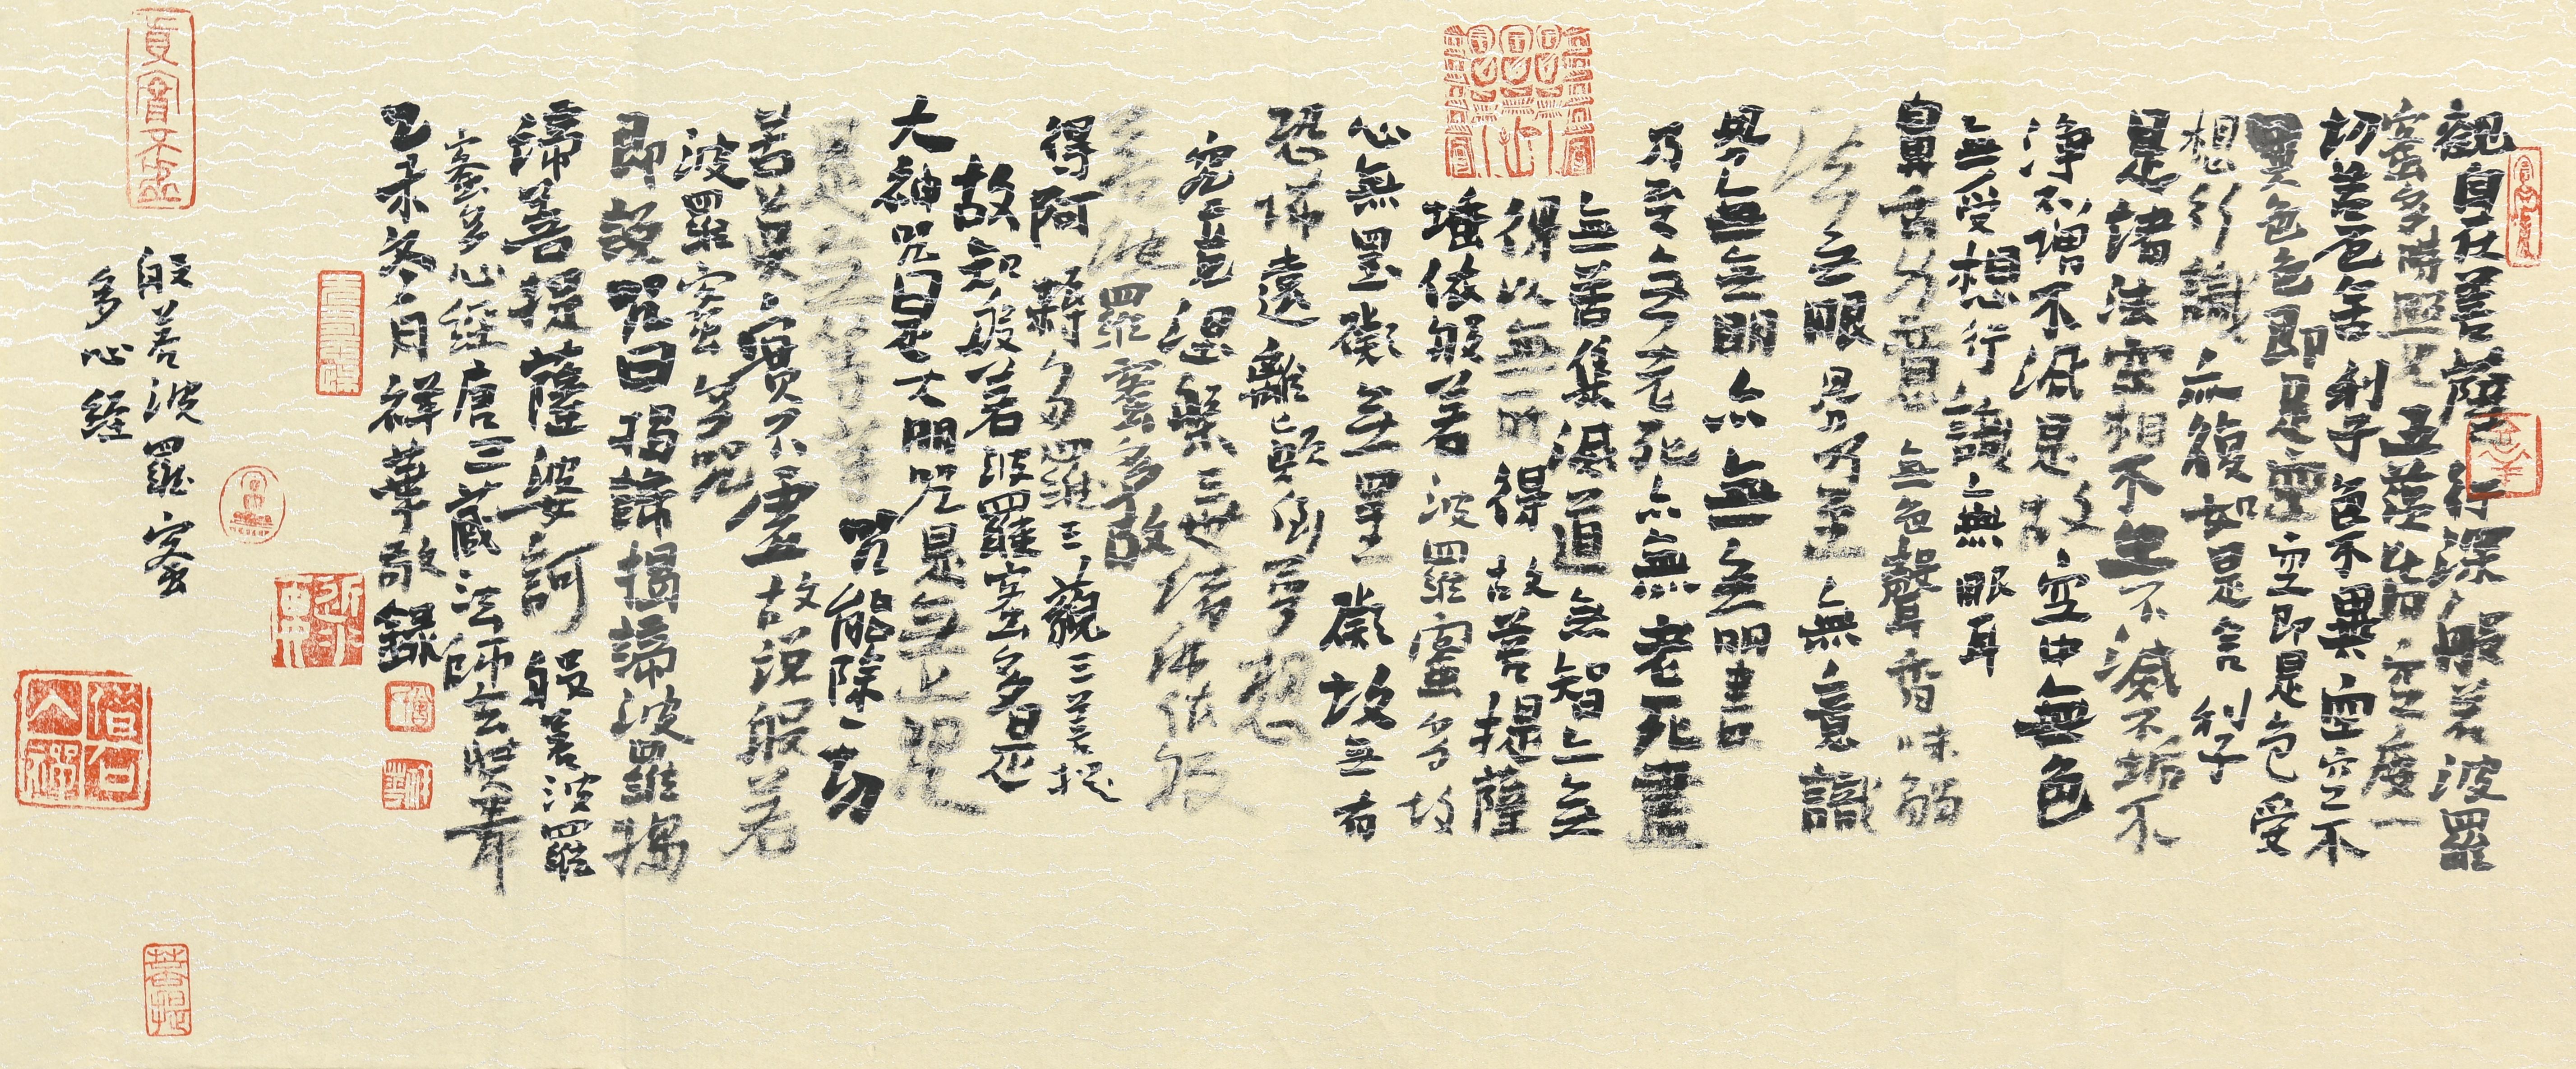 觀自在菩薩行深般若波羅
蜜多時照見五蘊皆空度一
切苦厄舍利子色不異空空不
異色色即是空空即是色受
想行識亦復如是舍利子
是諸法空相不生不滅不垢不
淨不增不減是故空中無色
無受想行識無眼耳
鼻舌身意無色聲香味觸
法無眼界乃至無意識
界無無明亦無無明盡
乃至無老死亦無老死盡
無苦集滅道無智亦無
得以無所得故菩提薩
埵依般若波羅蜜多故
心無罣礙無罣礙故無有
恐怖遠離顛倒夢想
究竟涅槃三世諸佛依般
若波羅蜜多故
得阿耨多羅三藐三菩提
故知般若波羅蜜多是
大神咒曰是大明咒是無上咒
是無等等咒能除一切
苦真實不虛故說般若
波羅蜜多咒
即說咒曰揭諦揭諦波羅揭
諦菩提薩婆訶般若波羅
蜜多心經唐三藏法師玄奘
乙未冬月祥華敬錄
般若波羅蜜
多心經